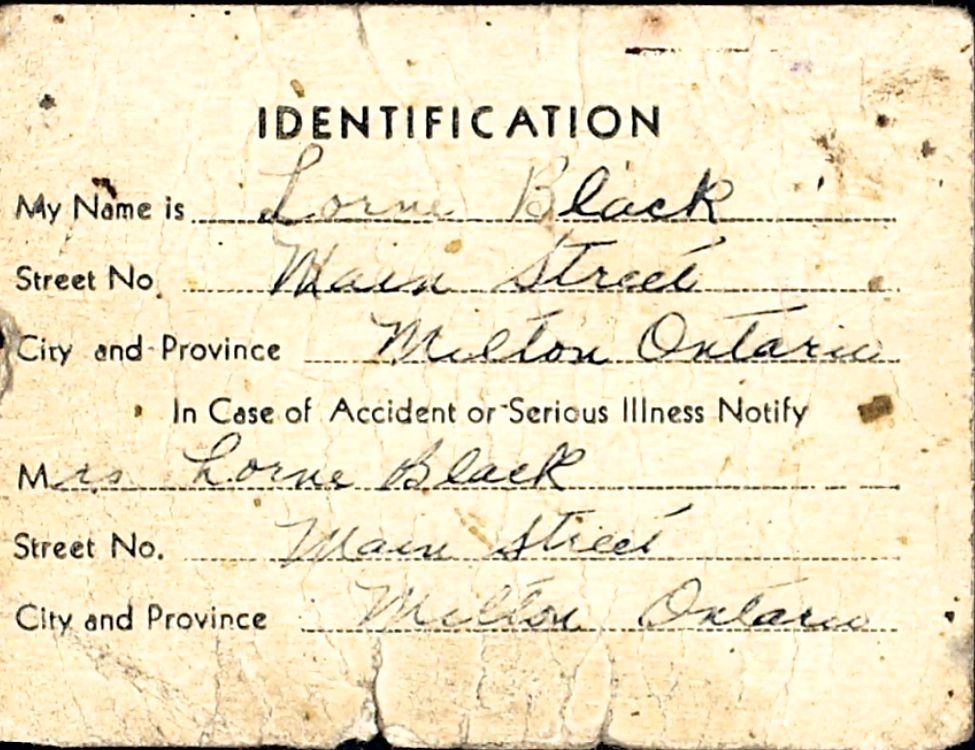 IDENTIFICATION
My Name is Lorne Black
Street No. Main Street
City and Province Milton Ontario
In Case of Accident or Serious Illness Notify
Mrs Lorne Black
Street No. Main Street
City and Province Milton Ontario